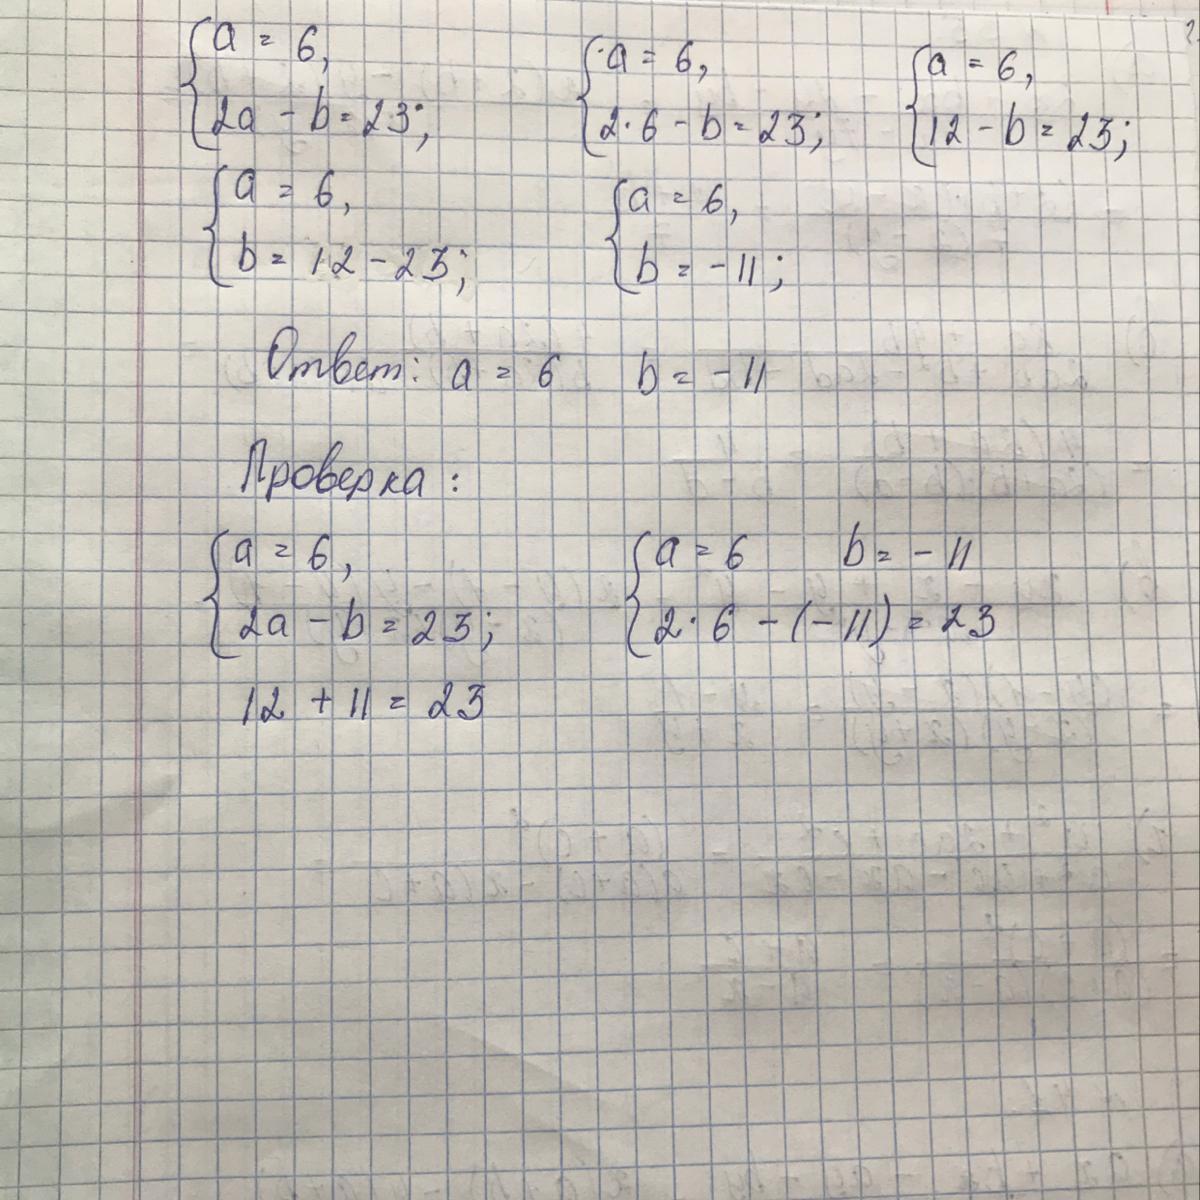 a = 6,
2a - b = 23;
a = 6,
2·6 - b = 23;
a = 6,
12 - b = 23;
a = 6,
b = 12 - 23;
a = 6,
b = -11;
Ответ: a = 6 b = -11
Проверка:
a = 6,
2a - b = 23;
a = 6 b = -11
2·6 - (-11) = 23
12 + 11 = 23